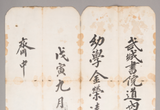 武城書院道內
幼學金榮
戊寅九月
齊中